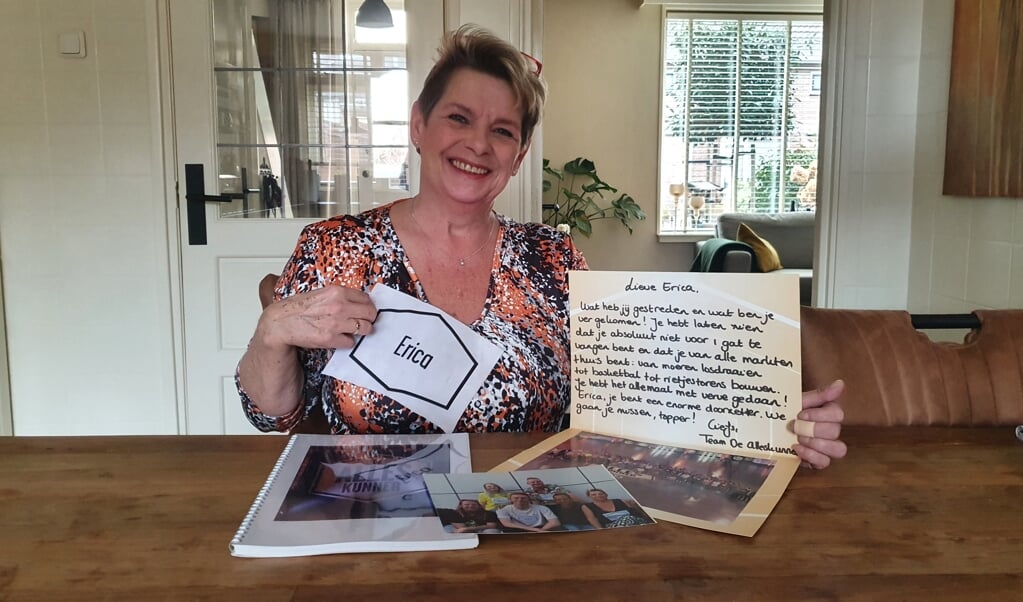 Erica
Lieve Erica,
Wat heb jij gestreden en wat ben je
ver gekomen! Je hebt laten zien
dat je absoluut niet voor 1 gat te
vangen bent en dat je van alle markten
thuis bent: van moeren losdraaien
tot basketbal tot rietjestorens bouwen.
Je hebt het allemaal met verve gedaan!
Erica, je bent een enorme doorzetter. We
gaan je missen, topper!
Liefs,
Team De Alleskunner
KUNNER